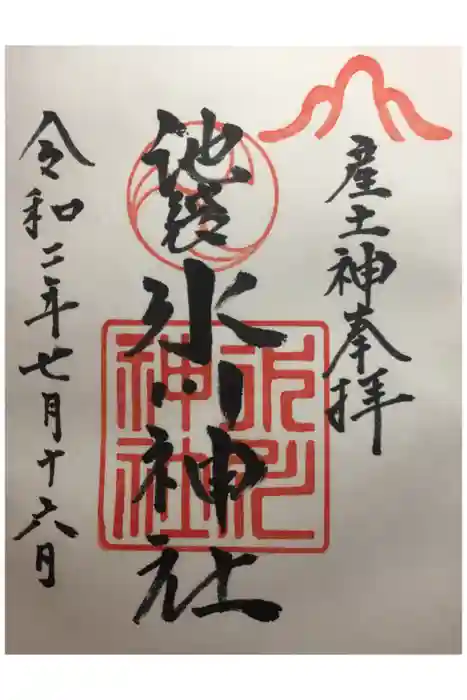 産土神奉拝
池袋氷川神社
令和二年七月十六日
氷川
神社